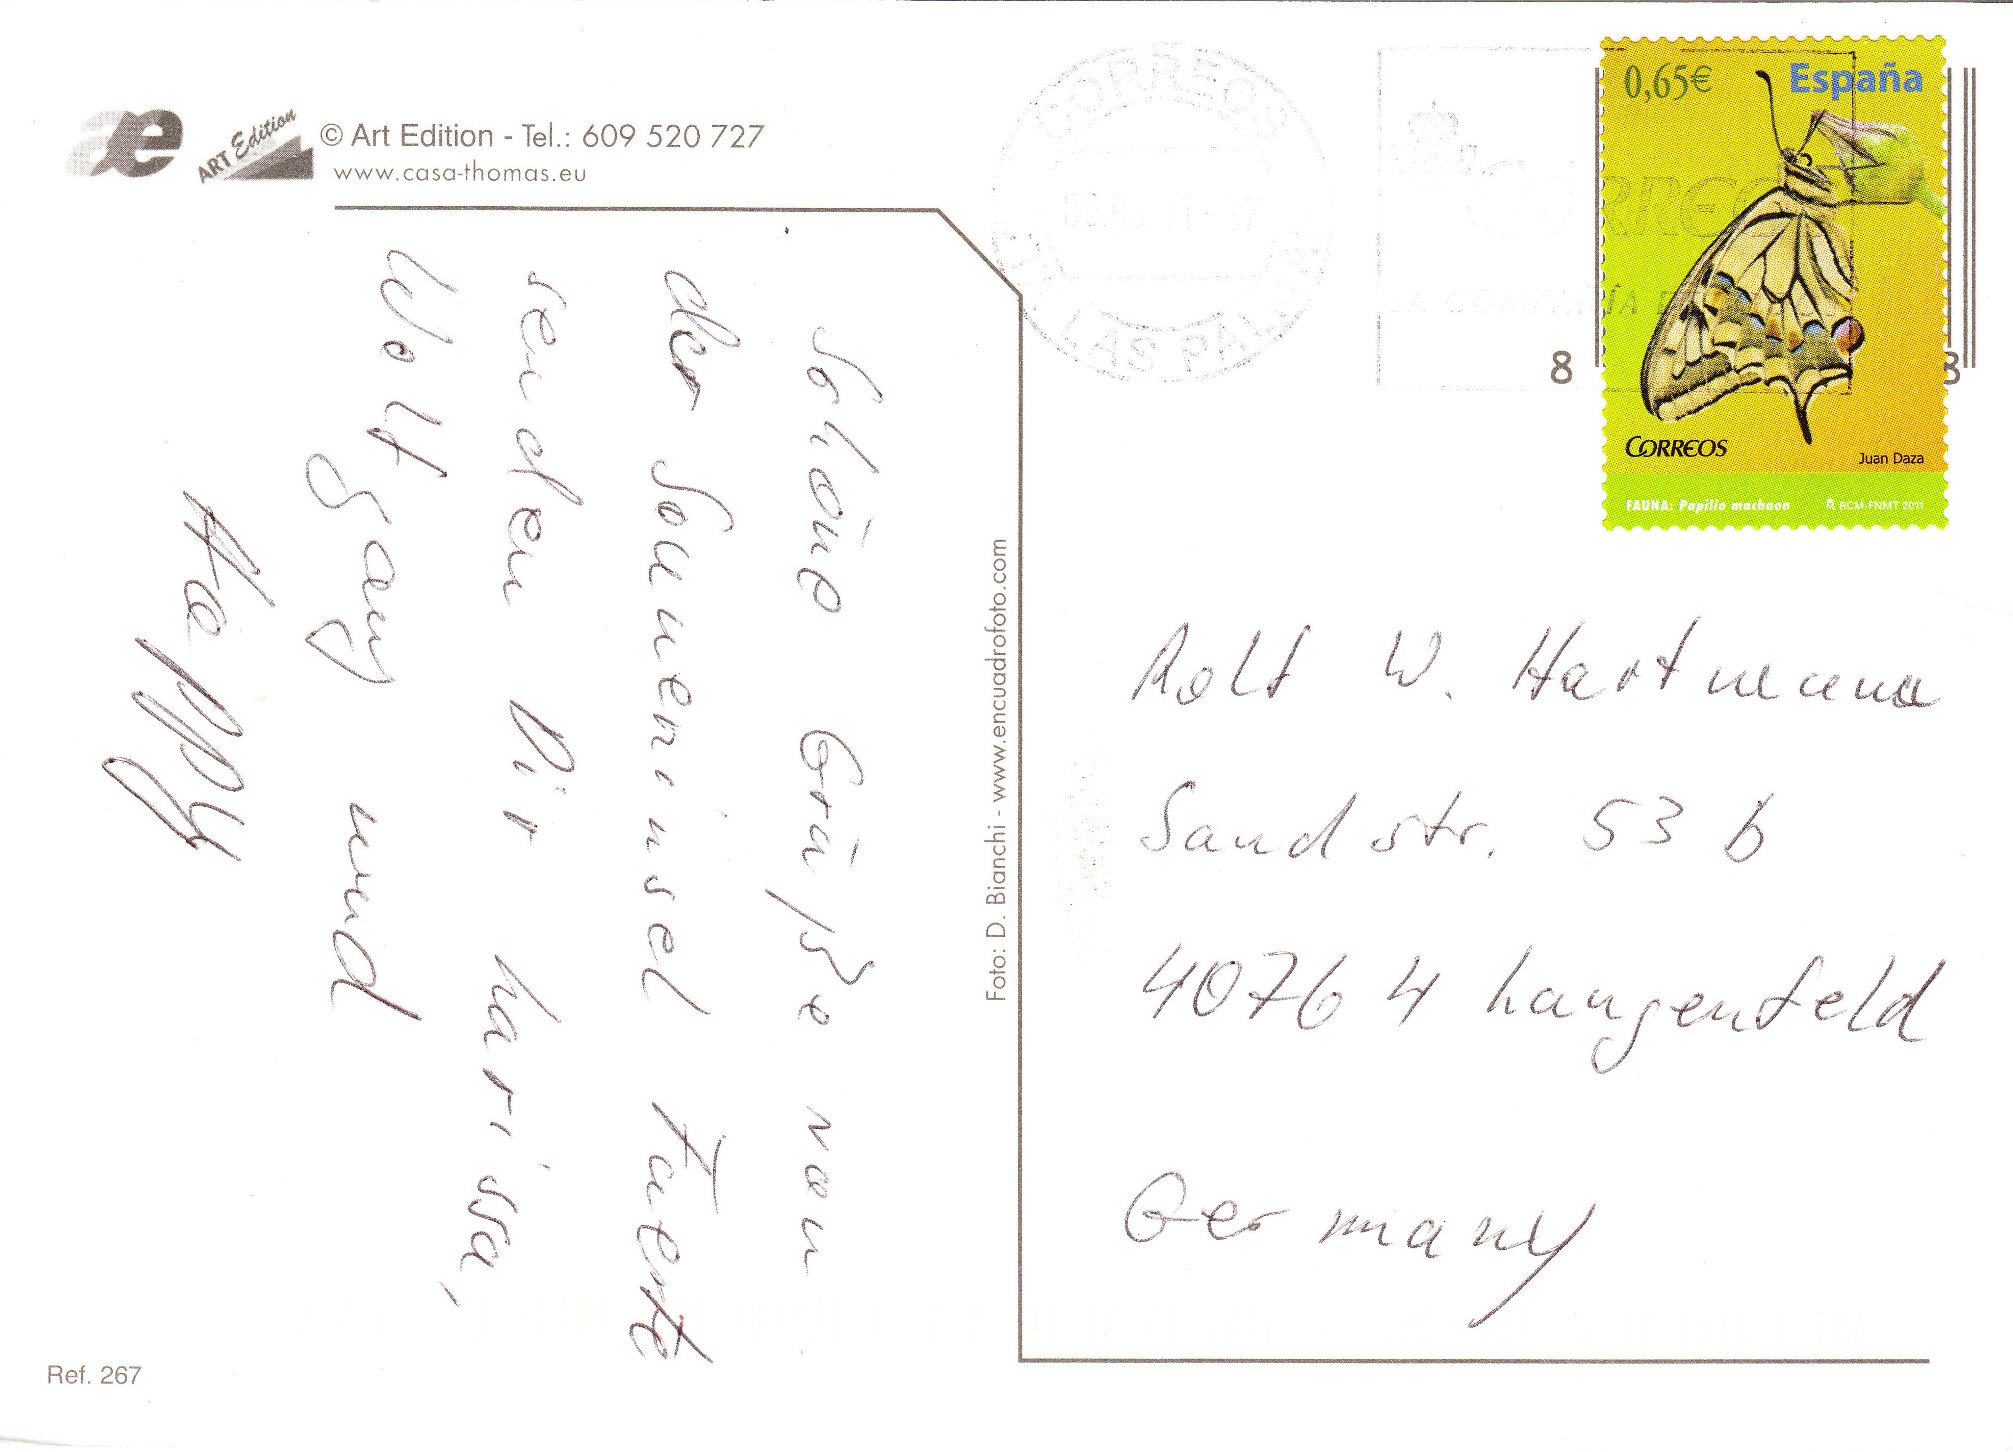 æ
ART Edition
© Art Edition - Tel.: 609 520 727
www.casa-thomas.eu
Schöne Grüße von
der Sonneninsel Fuerte
senden Dir Larissa,
Wolfgang und
Happy
Foto: D. Bianchi - www.encuadrofoto.com
Ref. 267
CORREOS
LAS PAL
CORREO
LA COMPAÑÍA
8
8
0,65€ España
CORREOS
Juan Daza
FAUNA: Papilio machaon RCM-FNMT 2011
Rolf W. Hartmann
Sandstr. 53 b
40764 Langenfeld
Germany